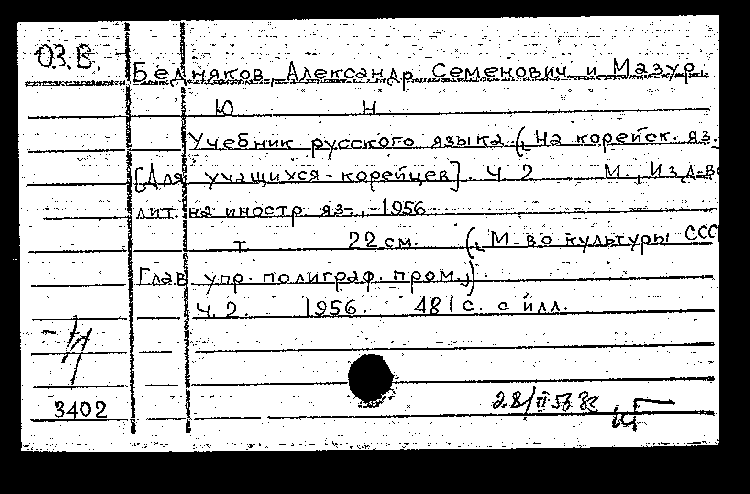 03.В.
Бедняков, Александр Семенович и Мазур,
Ю Н
Учебник русского языка (, На корейск. яз.
[Для учащихся-корейцев]. Ч. 2 М., Изд-во
лит. на иностр. яз., 1956
т. 22 см. (, М-во культуры ССС
Глав. упр. полиграф. пром.,)
Ч. 2. 1956. 481 с. с илл.
3402